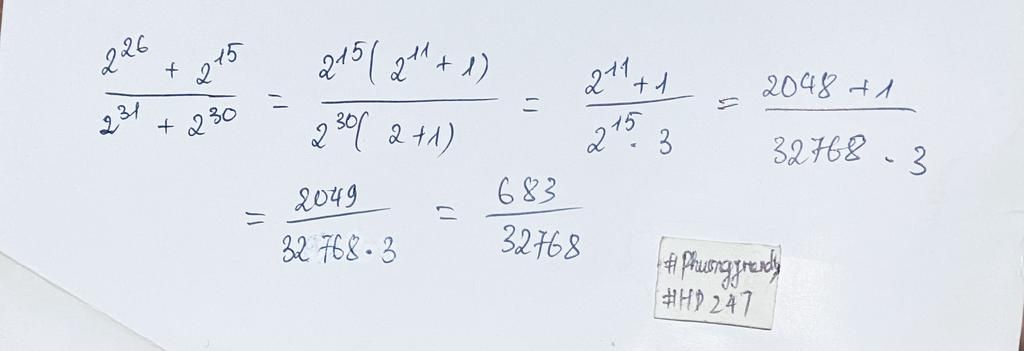 2^26 + 2^15 / 2^31 + 2^30 = 2^15( 2^11 + 1) / 2^30( 2 + 1) = 2^11 + 1 / 2^15 . 3 = 2048 + 1 / 32768 . 3
= 2049 / 32768 . 3 = 683 / 32768
#HD247